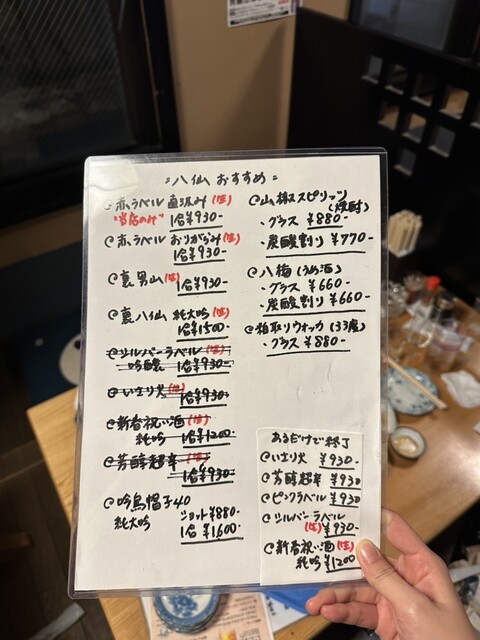 八仙おすすめ
赤ラベル 直汲み(生)
"当店のみ" 1合¥930-
赤ラベル おりがらみ(生)
1合¥930-
裏男山(生) 1合¥930-
裏八仙 純大吟(生)
1合¥1500-
シルバーラベル(生)
吟醸 1合¥930-
いさり火(生) 1合¥930-
新春祝い酒(生)
純吟 1合¥1200-
芳醇超辛(生)
1合¥930-
吟烏帽子40 ショット¥880-
純大吟 1合 ¥1,600-
スピリッツ
(焼酎)
・グラス ¥880-
・炭酸割り ¥770-
八梅(うめ酒)
・グラス ¥660-
・炭酸割り ¥660-
粕取りウォッカ(33度)
・グラス ¥880-
あるだけで終了
いさり火 ¥930-
芳醇超辛 ¥930
ピンクラベル ¥930
シルバーラベル
(生)¥930-
新春祝い酒(生)
純吟 ¥1200